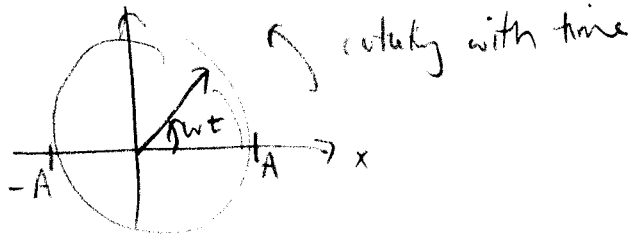 rotating with time
wt
-A
A
x